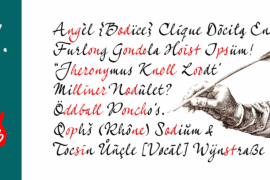 Angèl {Bodice} Clique Docilq En
Furlong Gondola Hoist Ipsüm!
“Jheronymus Knoll Loodt’
Milliner Nodület?
Öddball Poncho’s.
Qophš (Rhône) Sodiüm &
Tocsin Ůñçle [Vocāl] Wÿnstraße